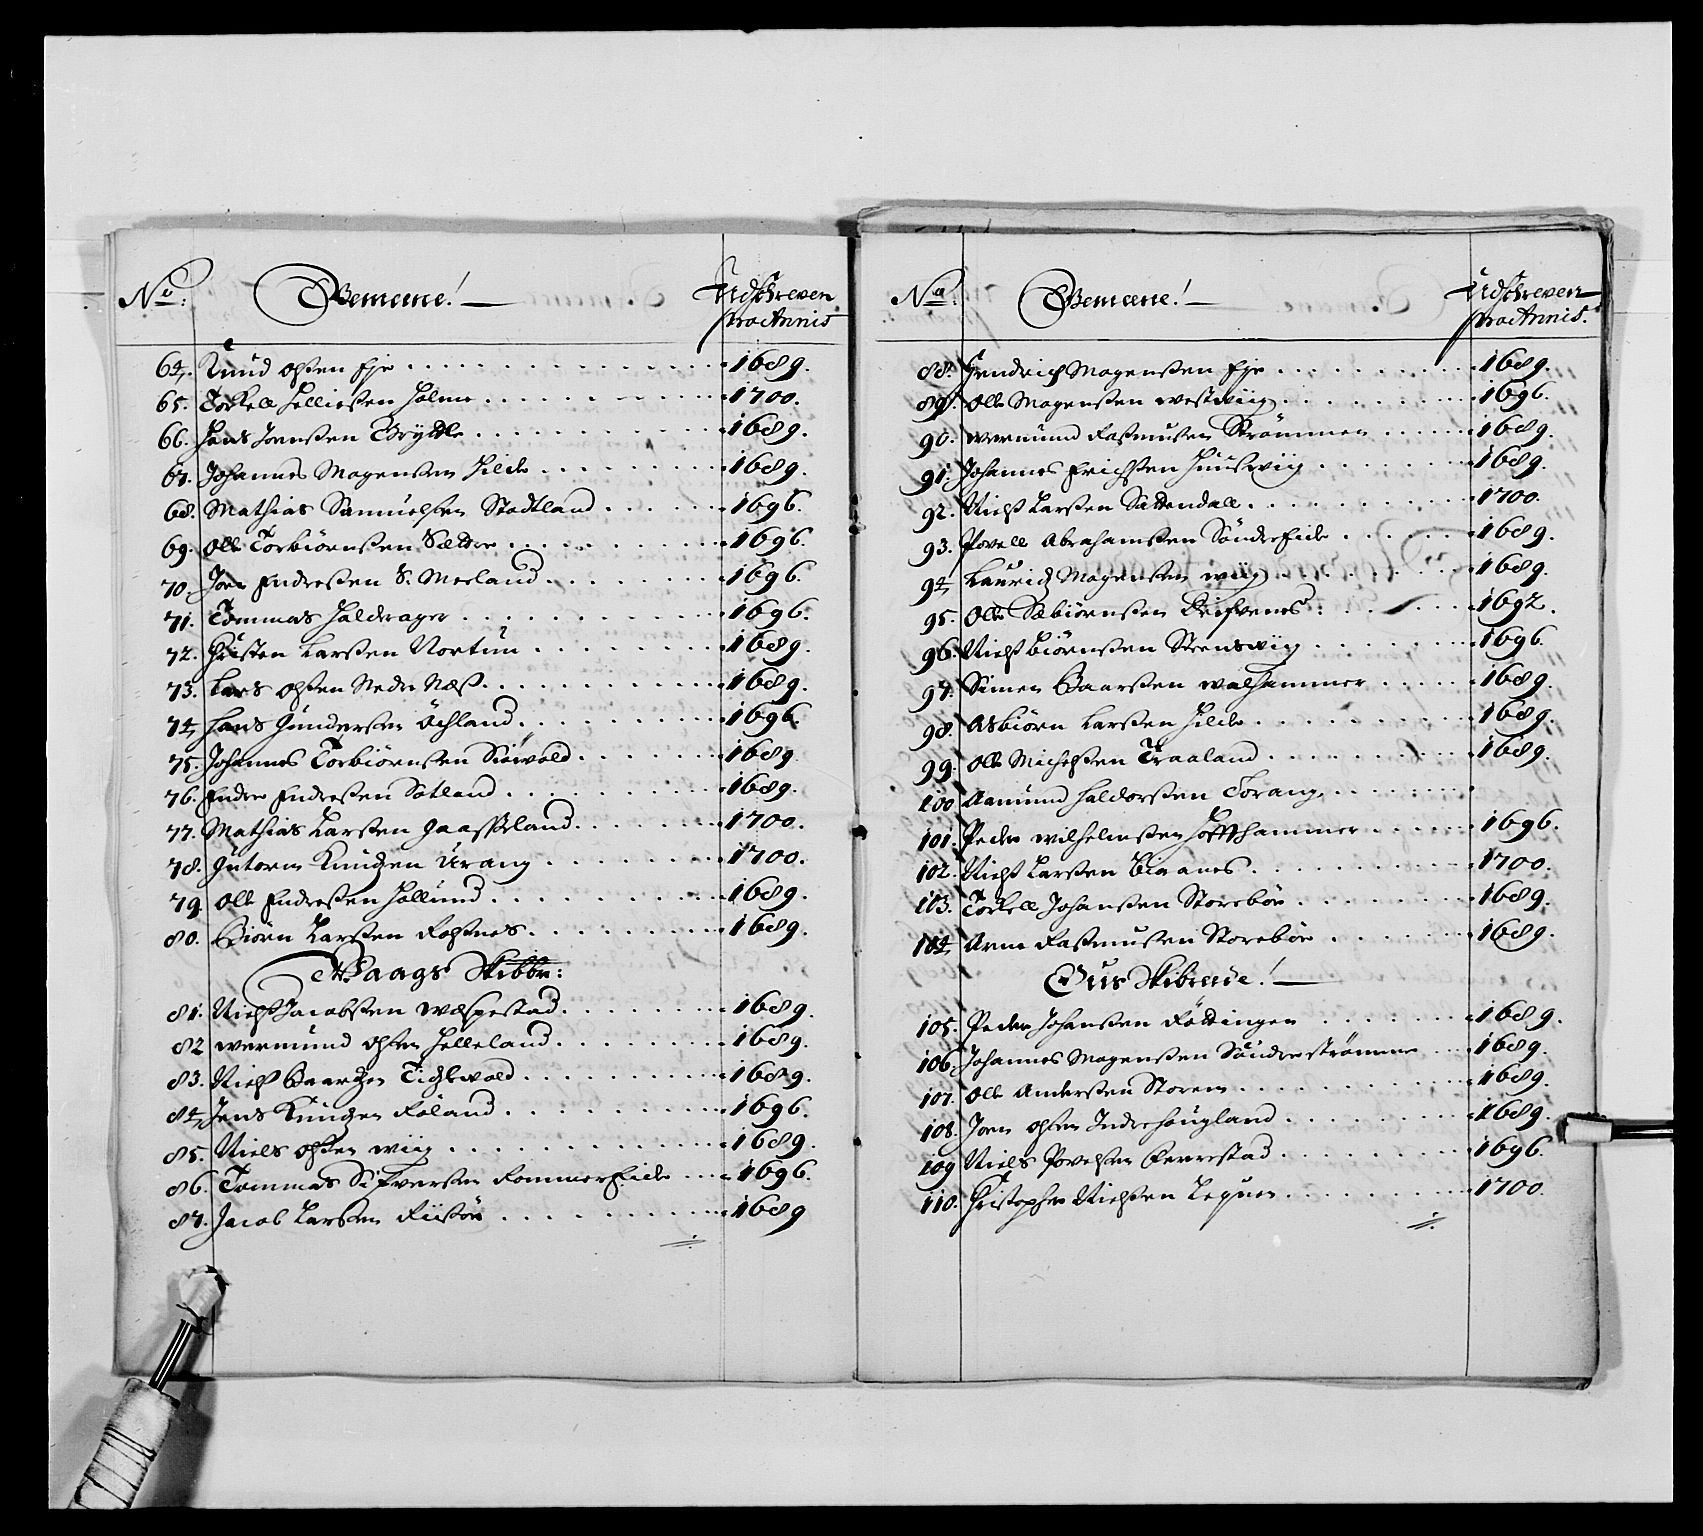 No: Gemeene! Udschreven pro Annis
64. Knud Olsen Eje 1689.
65. Torkell Helliesen Holme 1700.
66. Hans Jensen Brydtle 1689.
67. Johannes Mogensen Hilde 1689.
68. Mathias Samuelsen Stadtland 1696.
69. Olle Torbiørnsen Sætter 1696.
70. Jon Endresen S. Meeland 1696.
71. Tommas Halderager 1696.
72. Christen Larsen Nortun 1689.
73. Lars Olsen Nedre Næss 1689.
74. Hans Gundersen Öchland 1696.
75. Johannes Torbiørnsen Siøvold 1689.
76. Endre Endresen Sætland 1689.
77. Mathias Larsen Haaffland 1700.
78. Gutorm Knudsen Urang 1700.
79. Olle Endresen Hollund 1689.
80. Biørn Larsen Rolsnes 1689.
Waags Skibbr:
81. Niels Jacobsen Wæspestad 1689.
82 Wermund Olsen Helleland 1689.
83. Niels Baardsen Tislevold 1689.
84. Jens Knudsen Røland 1696.
85. Niels Olsen Wiig 1689.
86. Tommas Sifversen Rommer Eide 1696.
87. Jacob Larsen Riisør 1689
No. Gemeene! Udschreven pro Annis.
88. Hendrich Mogensen Eje 1689.
89. Olle Mogensen Westwiig 1696.
90. Wermund Rasmusen Strømmen 1689.
91. Johannes Erichsen Huuswiig 1689.
92. Niels Larsen Sattendall 1700.
93. Povell Abrahamsen Søndre Eide 1689.
94. Laurids Mogensen Wiig 1689.
95. Olle Sæbiørnsen Drifvenes 1692.
96. Niels Biørnsen Steenswiig 1696.
97. Simen Baarsen Walhammer 1689.
98. Asbiørn Larsen Hilde 1689.
99. Olle Michelsen Traaland 1689.
100 Aamund Haldorsen Torang
101. Peder Wilhelmsen Hoffshammer 1696.
102. Niels Larsen Biaanes 1700.
103. Torkell Johansen Storebøe 1689.
104. Arne Rasmusen Storebøe 1689.
Ous Skibrede!
105. Peder Johansen Røttingen 1689.
106. Johannes Mogensen Søndre Strømme 1689.
107. Olle Andersen Storem 1689.
108. Jon Olsen Indrehougland 1689.
109 Niels Povelsen Gierestad 1696.
110. Christopher Nielsen Lequen 1700.